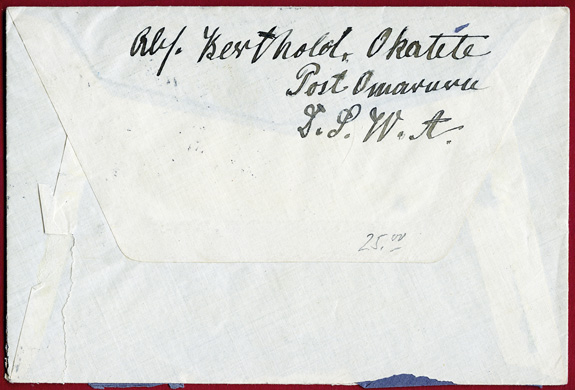 Abs. Berthold. Okatéte
Post Omaruru
D. S. W. A.
25.00